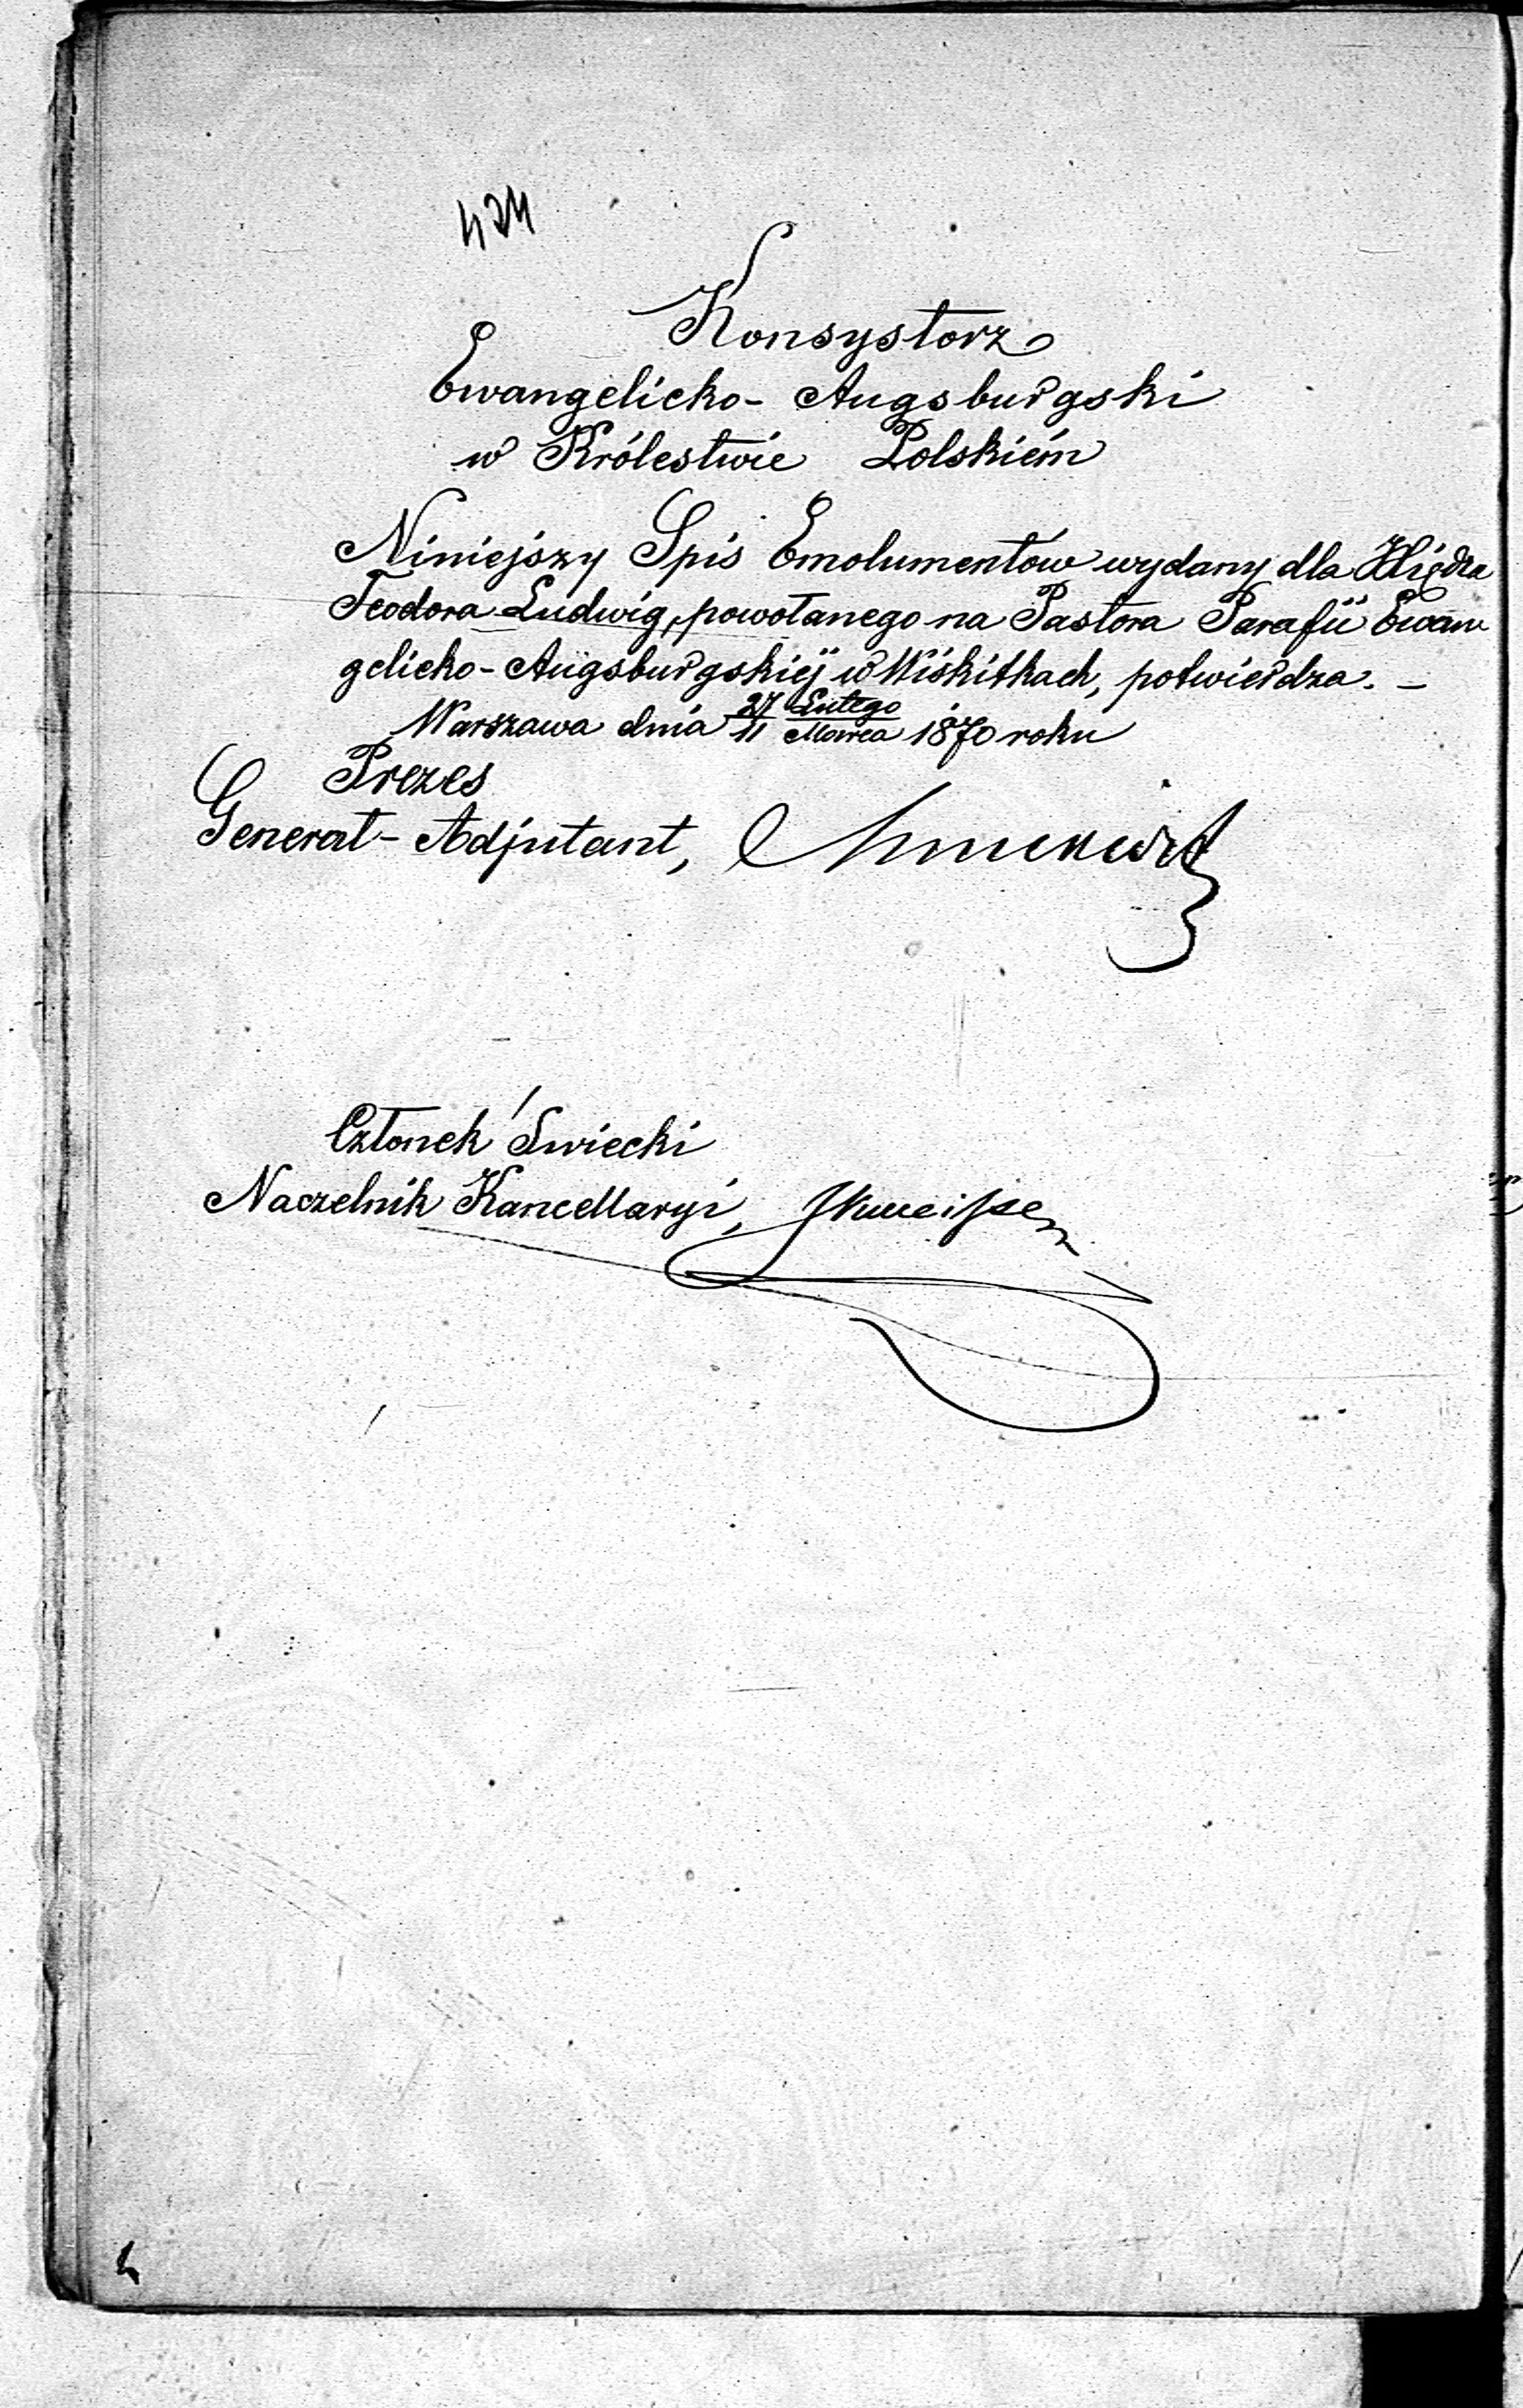 424
Konsystorz
Ewangelicko-Augsburgski
w Królestwie Polskiém
Niniejszy Spis Emolumentów wydany dla Xiędza
Teodora Ludwig, powołanego na Pastora Parafii Ewan
gelicko-Augsburgskiéj w Wiskitkach, potwierdza. —
Warszawa dnia 27 Lutego / 11 Marca 1870 roku
Prezes
Generał-Adjutant,
Członek Świecki
Naczelnik Kancellaryi,